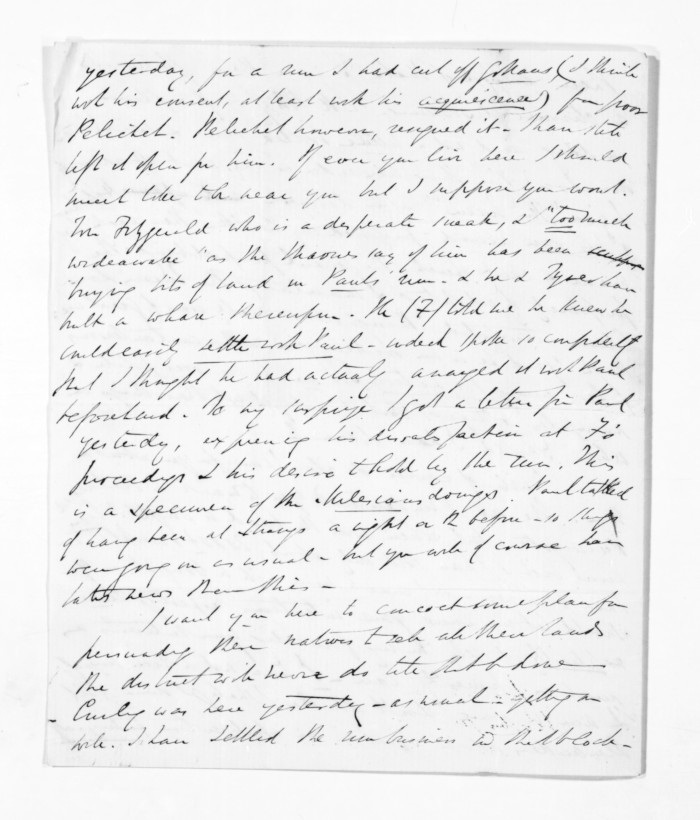 yesterday, for a run I had cut off Gollans (I think
with his consent, at least with his acquiescence) for poor
Pelichet. Pelichet however, resigned it - & have still
left it open for him. If ever you live here I should
much like to be near you but I suppose you wont.
Tom Fitzgerald who is a desperate sneak, & "too much
wideawake" as the Maories say of him has been
buying bits of land in Pauls' run - & he & Tyser have
built a whare thereupon. He (F) told me he knew he
could easily settle with Paul - indeed spoke so confidently
that I thought he had actually arranged it with Paul
beforehand. To my surprise I got a letter from Paul
yesterday, expressing his dissatisfaction at F's
proceedings & his desire to hold by the run. This
is a specimen of the Milesians doings. Paul talked
of having been at Strangs a night or two before - so things
were going on as usual - but you will of course have
later news than this -
I want you here to concoct some plan for
persuading these natives to sell all their lands
the district will never do till that be done
Curling was here yesterday - as usual - getting on
well. I have settled the run business in that block -